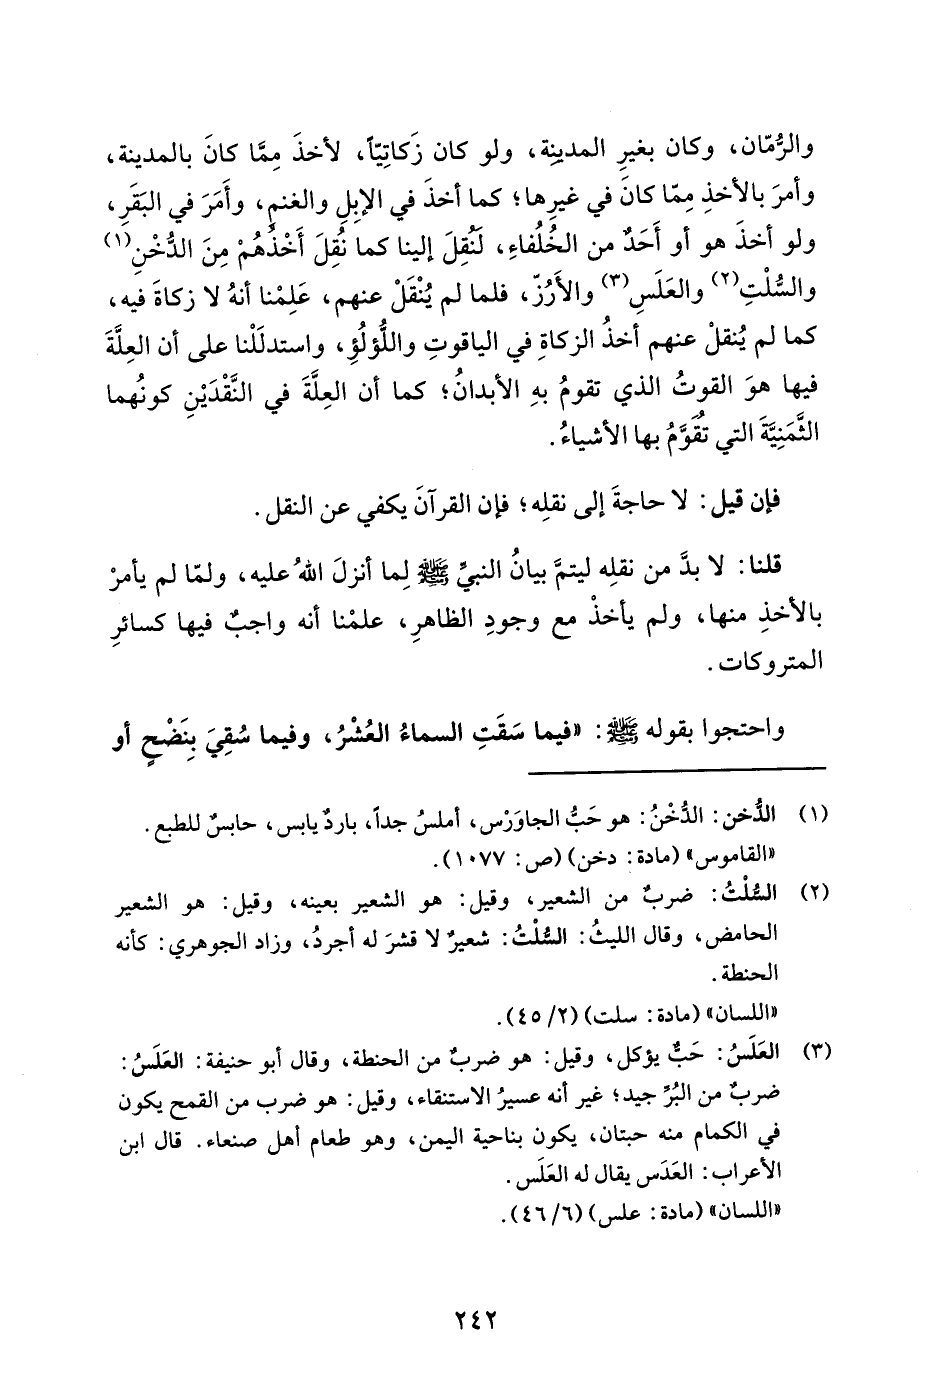 والرُّمّان، وكان بغيرِ المدينِة، ولو كان زَكاتِيّاً، لأخذَ مِمَّا كانَ بالمدينة،
وأمرَ بالأخذِ مِمّا كانَ في غيرِها؛ كما أخذَ في الإبلِ والغنمِ، وأَمَرَ في البَقَرِ،
ولو أخذَ هو أو أَحَدٌ من الخُلُفاءِ، لَنُقِلَ إلينا كما نُقِلَ أَخْذُهُمْ مِنَ الدُّخْنِ(١)
والسُّلْتِ(٢) والعَلَسِ(٣) والأَرُزّ، فلما لم يُنْقَلْ عنهم، عَلِمْنا أنهُ لا زكاةَ فيه،
كما لم يُنقلْ عنهم أخذُ الزكاةِ في الياقوتِ واللُّؤلُؤِ، واستدلَلْنا على أن العِلَّةَ
فيها هوَ القوتُ الذي تقومُ بهِ الأبدانُ؛ كما أن العِلَّةَ في النَّقْدَيْنِ كونُهما
الثَّمَنِيَّةَ التي تُقَوَّمُ بها الأشياءُ.
فإن قيل: لا حاجةَ إلى نقلِه؛ فإن القرآنَ يكفي عن النقل.
قلنا: لا بدَّ من نقلِه ليتمَّ بيانُ النبيِّ ﷺ لِما أنزلَ اللهُ عليه، ولمّا لم يأمرْ
بالأخذِ منها، ولم يأخذْ مع وجودِ الظاهرِ، علمْنا أنه واجبٌ فيها كسائرِ
المتروكات.
واحتجوا بقوله ﷺ: «فيما سَقَتِ السماءُ العُشْرُ، وفيما سُقِيَ بِنَضْحٍ أو
(١) الدُّخن: الدُّخْنُ: هو حَبُّ الجاوَرْس، أملسُ جداً، باردٌ يابس، حابسٌ للطبع.
«القاموس» (مادة: دخن) (ص: ١٠٧٧).
(٢) السُّلْتُ: ضربٌ من الشعير، وقيل: هو الشعير بعينه، وقيل: هو الشعير
الحامض، وقال الليثُ: السُّلْتُ: شعيرٌ لا قشرَ له أجردُ، وزاد الجوهري: كأنه
الحنطة.
«اللسان» (مادة: سلت) (٢/ ٤٥).
(٣) العَلَسُ: حَبٌّ يؤكل، وقيل: هو ضربٌ من الحنطة، وقال أبو حنيفة: العَلَسُ:
ضربٌ من البُرِّ جيد؛ غير أنه عسيرُ الاستنقاء، وقيل: هو ضرب من القمح يكون
في الكمام منه حبتان، يكون بناحية اليمن، وهو طعام أهل صنعاء. قال ابن
الأعراب: العَدَس يقال له العَلَس.
«اللسان» (مادة: علس) (٦/ ٤٦).
٢٤٢